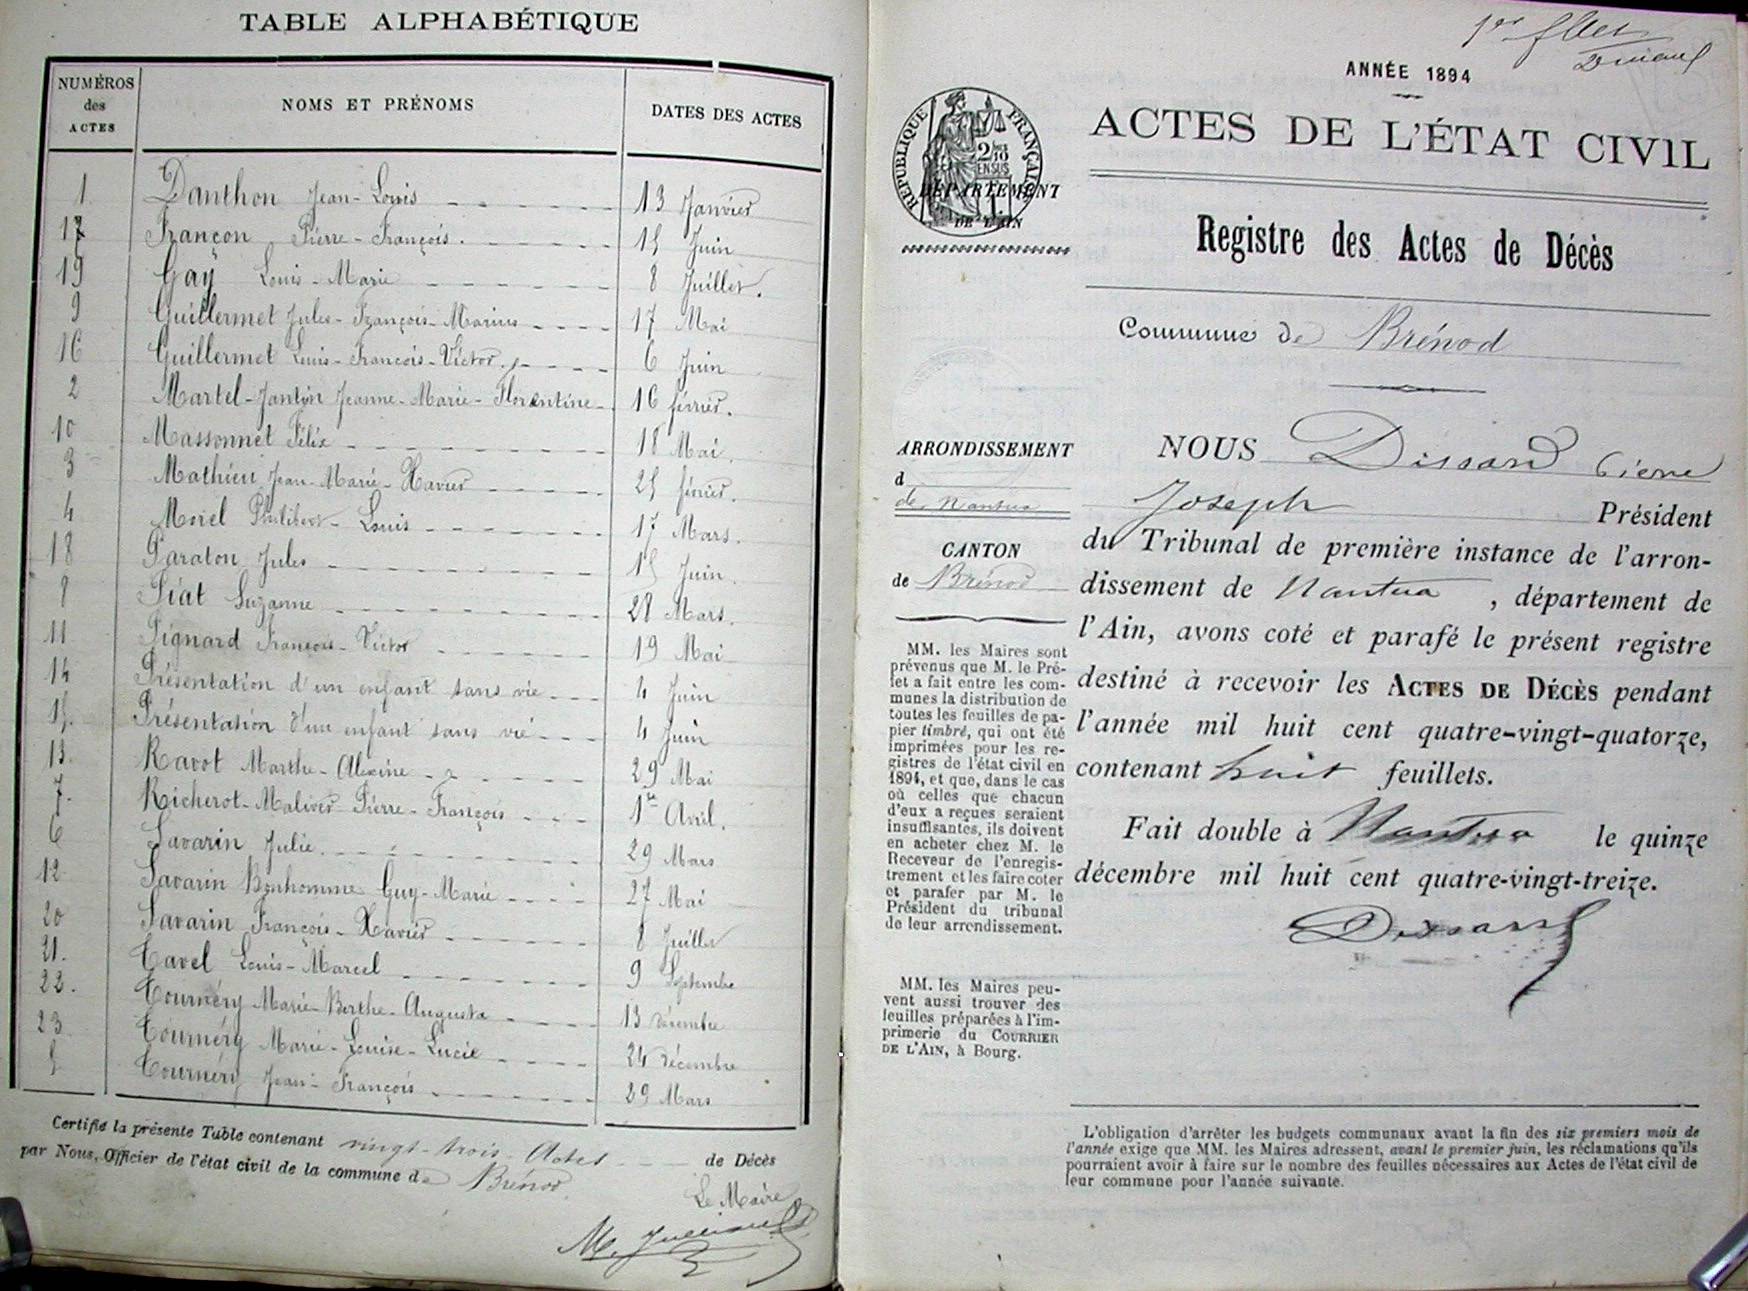 TABLE ALPHABÉTIQUE
NUMÉROS des ACTES NOMS ET PRÉNOMS DATES DES ACTES
1 Danthon Jean-Louis 13 Janvier
17 Françon Pierre-François. 15 Juin
19 Gay Louis-Marie 8 Juillet.
9 Guillermet Jules-François-Marius 17 Mai
16 Guillermet Louis-François-Victor 6 Juin
2 Martel-Jantin Jeanne-Marie-Florentine 16 février.
10 Massonnet Félix 18 Mai.
3 Mathieu Jean-Marie-Xavier 25 février.
4 Morel Philibert-Louis 17 Mars.
18 Paraton Jules 15 Juin.
8 Piat Suzanne 28 Mars.
11 Pignard François-Victor 19 Mai
14 Présentation d'un enfant sans vie 4 Juin
15. Présentation d'un enfant sans vie 4 Juin
13. Ravot Marthe-Alexine 29 Mai
7. Richerot-Malivet Pierre-François 1er Avril.
6 Savarin Julie 29 Mars
12 Savarin Bonhomme Guy-Marie 27 Mai
20 Savarin François-Xavier 8 Juillet
21. Tavel Louis-Marcel 9 Septembre
22. Tournéry Marie-Berthe-Augusta 13 décembre
23 Tournéry Marie-Louise-Lucie 24 décembre
5 Tournéry Jean-François 29 Mars
Certifié la présente Table contenant vingt-trois Actes de Décès
par Nous, Officier de l'état civil de la commune de Brénod.
Le Maire
1er fllet
ANNÉE 1894
ACTES DE L'ÉTAT CIVIL
RÉPUBLIQUE FRANÇAISE
2/10 EN SUS
DÉPARTEMENT
DE L'AIN
Registre des Actes de Décès
Commune de Brénod
ARRONDISSEMENT
d
de Nantua
CANTON
de Brénod
MM. les Maires sont
prévenus que M. le Pré-
fet a fait entre les com-
munes la distribution de
toutes les feuilles de pa-
pier timbré, qui ont été
imprimées pour les re-
gistres de l'état civil en
1894, et que, dans le cas
où celles que chacun
d'eux a reçues seraient
insuffisantes, ils doivent
en acheter chez M. le
Receveur de l'enregis-
trement et les faire coter
et parafer par M. le
Président du tribunal
de leur arrondissement.
MM. les Maires peu-
vent aussi trouver des
feuilles préparées à l'im-
primerie du COURRIER
DE L'AIN, à Bourg.
NOUS Dissard Pierre
Joseph Président
du Tribunal de première instance de l'arron-
dissement de Nantua, département de
l'Ain, avons coté et parafé le présent registre
destiné à recevoir les ACTES DE DÉCÈS pendant
l'année mil huit cent quatre-vingt-quatorze,
contenant huit feuillets.
Fait double à Nantua le quinze
décembre mil huit cent quatre-vingt-treize.
Dissard
L'obligation d'arrêter les budgets communaux avant la fin des six premiers mois de
l'année exige que MM. les Maires adressent, avant le premier juin, les réclamations qu'ils
pourraient avoir à faire sur le nombre des feuilles nécessaires aux Actes de l'état civil de
leur commune pour l'année suivante.